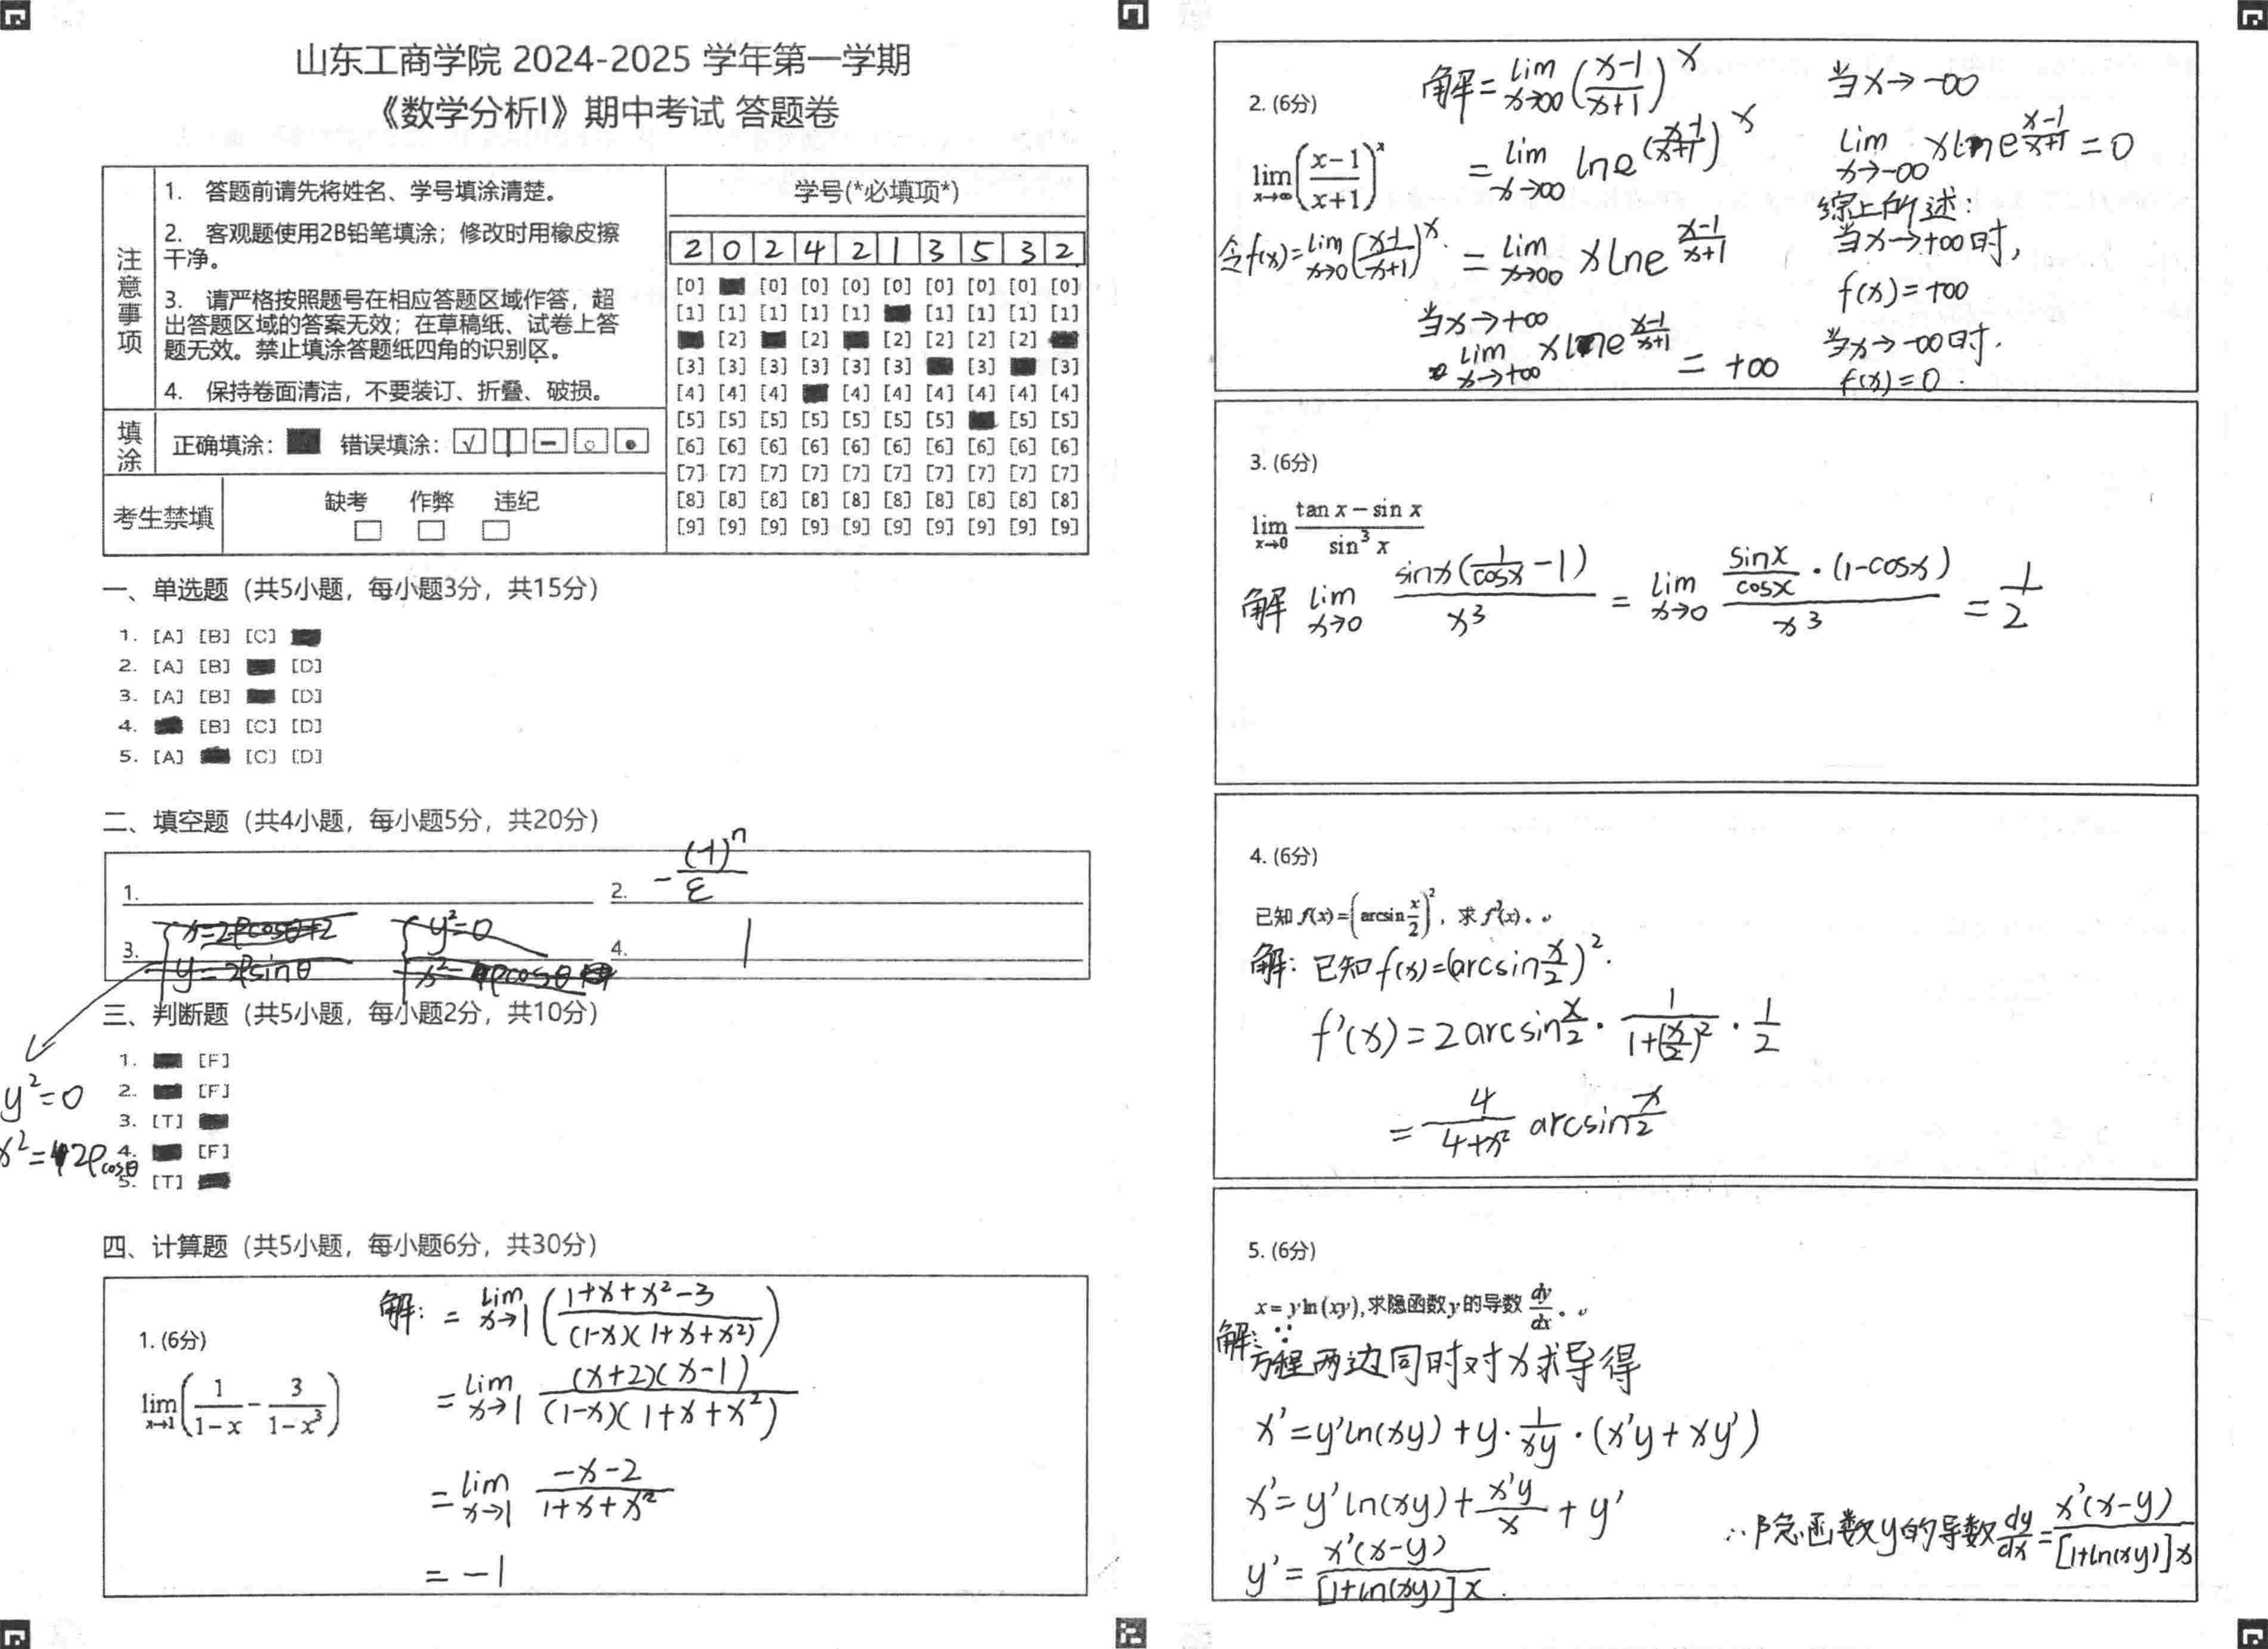 山东工商学院 2024-2025 学年第一学期
《数学分析Ⅰ》期中考试 答题卷
注意事项
1. 答题前请先将姓名、学号填涂清楚。
2. 客观题使用2B铅笔填涂；修改时用橡皮擦
干净。
3. 请严格按照题号在相应答题区域作答，超
出答题区域的答案无效；在草稿纸、试卷上答
题无效。禁止填涂答题纸四角的识别区。
4. 保持卷面清洁，不要装订、折叠、破损。
填涂
正确填涂： 错误填涂：
考生禁填
缺考 作弊 违纪
学号(*必填项*)
2 0 2 4 2 1 3 5 3 2
[0] [0] [0] [0] [0] [0] [0] [0] [0]
[1] [1] [1] [1] [1] [1] [1] [1] [1]
[2] [2] [2] [2] [2] [2]
[3] [3] [3] [3] [3] [3] [3] [3]
[4] [4] [4] [4] [4] [4] [4] [4] [4]
[5] [5] [5] [5] [5] [5] [5] [5] [5]
[6] [6] [6] [6] [6] [6] [6] [6] [6] [6]
[7] [7] [7] [7] [7] [7] [7] [7] [7] [7]
[8] [8] [8] [8] [8] [8] [8] [8] [8] [8]
[9] [9] [9] [9] [9] [9] [9] [9] [9] [9]
一、单选题（共5小题，每小题3分，共15分）
1. [A] [B] [C]
2. [A] [B] [D]
3. [A] [B] [D]
4. [B] [C] [D]
5. [A] [C] [D]
二、填空题（共4小题，每小题5分，共20分）
1.
2. -(-1)^n/ε
3. x=2ρcosθ+2 y=2ρsinθ y²=0
4. 1
y²=0
x²=2ρcosθ
三、判断题（共5小题，每小题2分，共10分）
1. [F]
2. [F]
3. [T]
4. [F]
5. [T]
四、计算题（共5小题，每小题6分，共30分）
1. (6分)
lim x→1 (1/(1-x) - 3/(1-x³))
解: = lim x→1 ((1+x+x²-3)/((1-x)(1+x+x²)))
= lim x→1 (x+2)(x-1)/((1-x)(1+x+x²))
= lim x→1 (-x-2)/(1+x+x²)
= -1
2. (6分)
lim x→∞ ((x-1)/(x+1))^x
解= lim x→∞ ((x-1)/(x+1))^x
= lim x→∞ lne^((x-1)/(x+1))^x
令f(x)=lim x→0 ((x-1)/(x+1))^x.
= lim x→∞ xlne^((x-1)/(x+1))
当x→+∞
lim x→+∞ xlne^((x-1)/(x+1)) = +∞
当x→-∞
lim x→-∞ xlne^((x-1)/(x+1)) = 0
综上所述:
当x→+∞时,
f(x)=+∞
当x→-∞时.
f(x)=0.
3. (6分)
lim x→0 (tan x - sin x)/sin³ x
解 lim x→0 sinx(1/cosx - 1)/x³ = lim x→0 (sinx/cosx · (1-cosx))/x³ = 1/2
4. (6分)
已知 f(x)=(arcsin x/2)², 求 f'(x)。
解: 已知f(x)=(arcsin x/2)².
f'(x)=2arcsin x/2 · 1/(1+(x/2)²) · 1/2
= 4/(4+x²) arcsin x/2
5. (6分)
x=yln(xy),求隐函数y的导数 dy/dx。
解: ∵
方程两边同时对x求导得
x'=y'ln(xy)+y·1/xy·(x'y+xy')
x'=y'ln(xy)+x'y/x+y'
y'=x'(x-y)/[1+ln(xy)]x.
∴隐函数y的导数dy/dx=x'(x-y)/[1+ln(xy)]x